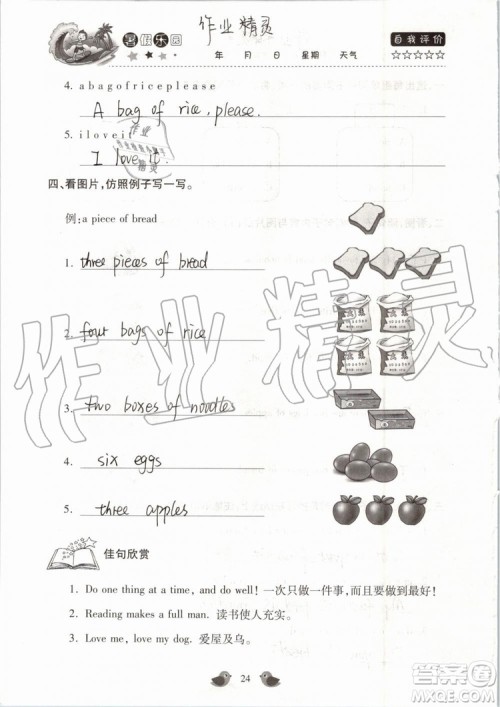 暑假乐园
作业精灵
年 月 日 星期 天气
自我评价
☆☆☆☆☆
4. a b a g o f r i c e p l e a s e
A bag of rice, please.
5. i l o v e i t
I love it.
四、看图片,仿照例子写一写。
例: a piece of bread
1. three pieces of bread
2. four bags of rice
3. two boxes of noodles
4. six eggs
5. three apples
佳句欣赏
1. Do one thing at a time, and do well! 一次只做一件事,而且要做到最好!
2. Reading makes a full man. 读书使人充实。
3. Love me, love my dog. 爱屋及乌。
24
作业精灵
答案圈
MXQE.COM